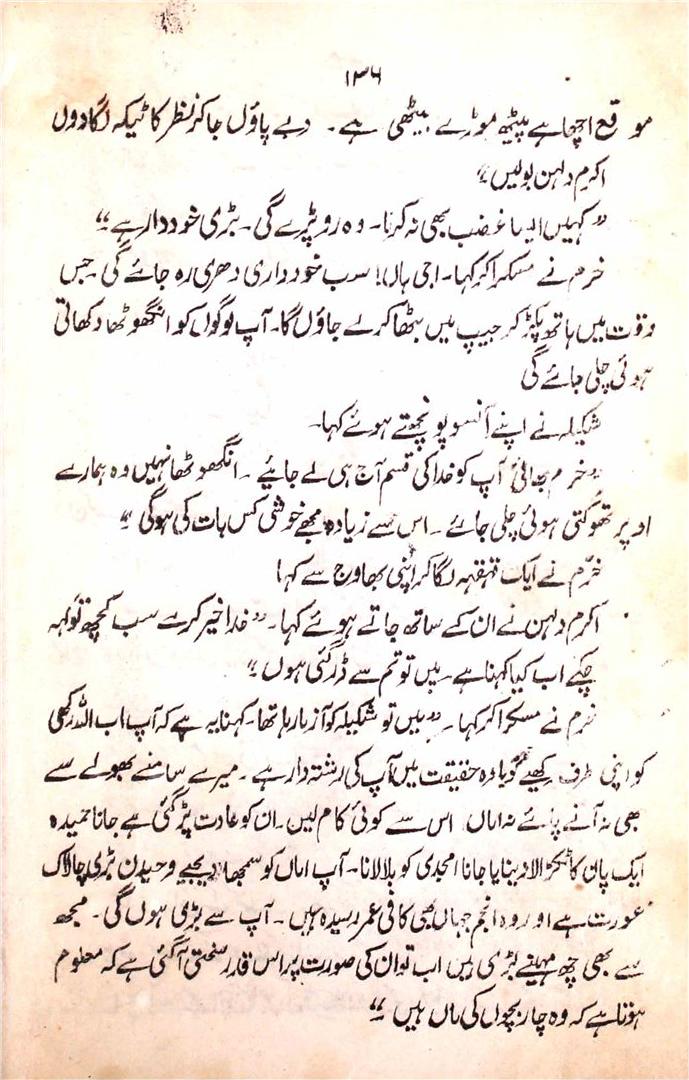 ۱۳۶
موقع اچھا ہے پیٹھ موڑے بیٹھی ہے۔ دبے پاؤں جا کر نظر کا ٹیکہ لگا دوں
اکرم دلہن بولیں۔"
"کہیں ایسا غضب بھی نہ کرنا۔ وہ رو پڑے گی۔ بڑی خوددار ہے۔"
خرم نے مسکرا کر کہا۔ اجی ہاں! سب خودداری دھری رہ جائے گی جس
وقت میں ہاتھ پکڑ کر جیپ میں بٹھا کر لے جاؤں گا۔ آپ لوگوں کو انگھوٹھا دکھاتی
ہوئی چلی جائے گی
شکیلہ نے اپنے آنسو پونچھتے ہوئے کہا۔
"خرم بھائی آپ کو خدا کی قسم آج ہی لے جایئے۔ انگھوٹھا نہیں وہ ہمارے
اوپر تھوکتی ہوئی چلی جائے۔ اس سے زیادہ مجھے خوشی کس بات کی ہوگی۔"
خرّم نے ایک قہقہہ لگا کر اپنی بھاوج سے کہا!
اکرم دلہن نے ان کے ساتھ جاتے ہوئے کہا۔ "خدا خیر کرے سب کچھ تو کہہ
چکے اب کیا کہنا ہے۔ میں تو تم سے ڈر گئی ہوں۔"
خرم نے مسکرا کر کہا۔ "میں تو شکیلہ کو آزما رہا تھا۔ کہنا یہ ہے کہ آپ اب اللہ رکھی
کو اپنی طرف رکھیے گویا وہ حقیقت میں آپ کی رشتہ دار ہے۔ میرے سامنے بھولے سے
بھی نہ آنے پائے نہ اماں اس سے کوئی کام لیں۔ ان کو عادت پڑ گئی ہے جانا حمیدہ
ایک پان کا ٹکڑا لانا بنایا جانا امجدی کو بلا لانا۔ آپ اماں کو سمجھا دیجیے وحیدن بڑی چالاک
عورت ہے اور وہ انجم جہاں بھی کافی عمر رسیدہ ہیں۔ آپ سے بڑی ہوں گی۔ مجھ
سے بھی چھ مہینے بڑی ہیں اب تو ان کی صورت پر اس قدر سختی آ گئی ہے کہ معلوم
ہوتا ہے کہ وہ چار بچوں کی ماں ہیں۔"